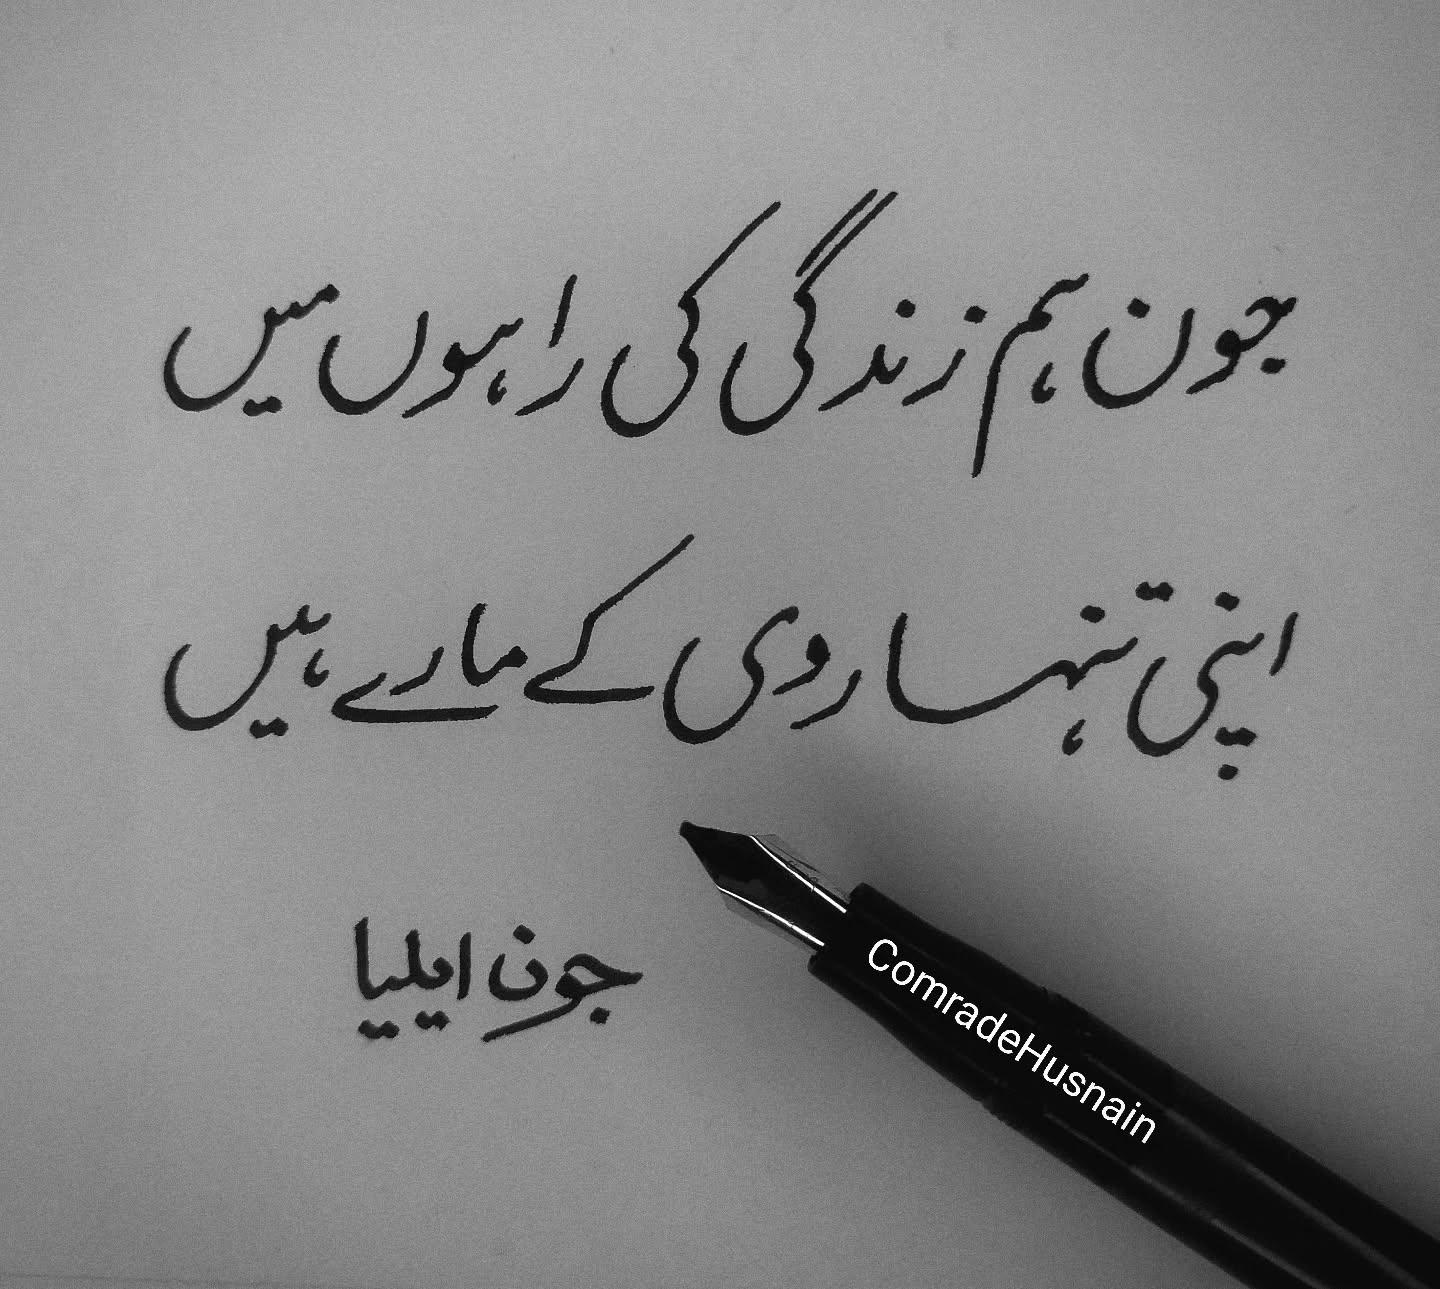 جون ہم زندگی کی راہوں میں
اپنی تنہا روی کے مارے ہیں
جون ایلیا
ComradeHusnain